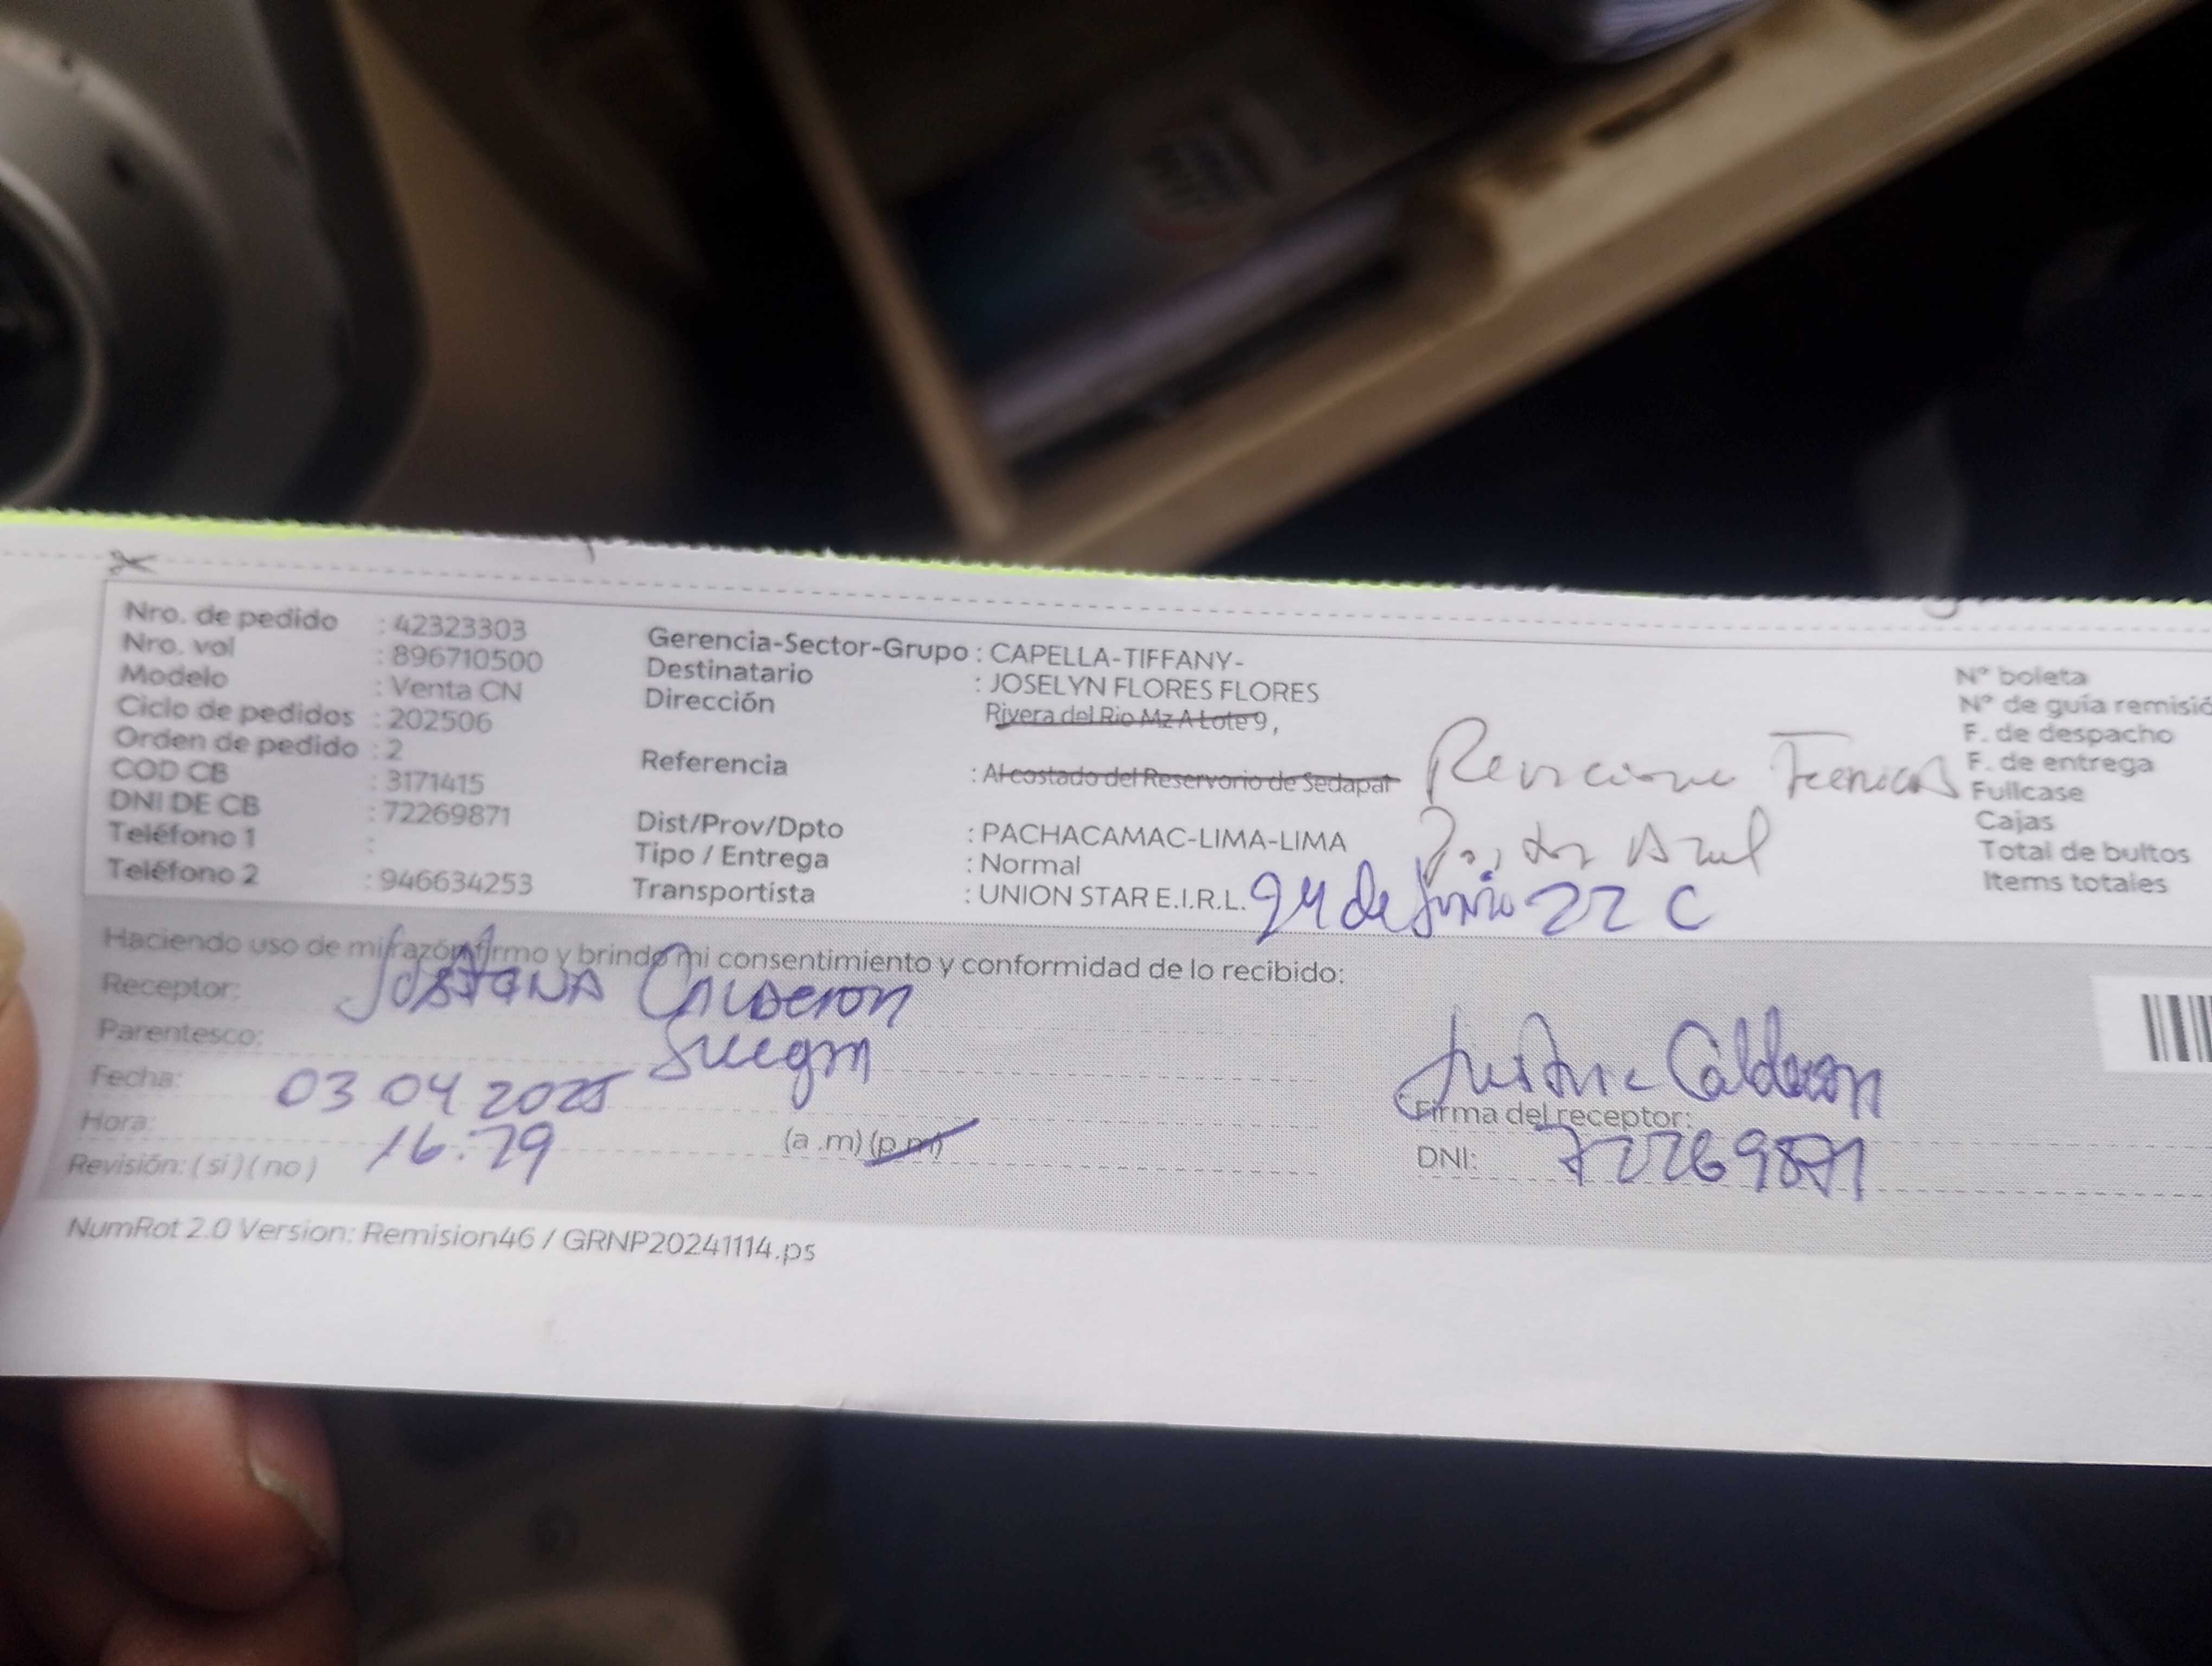 Nro. de pedido : 42323303
Nro. vol : 896710500
Modelo : Venta CN
Ciclo de pedidos : 202506
Orden de pedido : 2
COD CB : 3171415
DNI DE CB : 72269871
Teléfono 1 :
Teléfono 2 : 946634253
Gerencia-Sector-Grupo : CAPELLA-TIFFANY-
Destinatario : JOSELYN FLORES FLORES
Dirección Rivera del Rio Mz A Lote 9,
Referencia : Al costado del Reservorio de Sedapat
Dist/Prov/Dpto : PACHACAMAC-LIMA-LIMA
Tipo / Entrega : Normal
Transportista : UNION STAR E.I.R.L.
Tecnicas
Azul
24 de Junio 22 C
Nº boleta
Nº de guía remisió
F. de despacho
F. de entrega
Fullcase
Cajas
Total de bultos
Items totales
Haciendo uso de mi razón firmo y brindo mi consentimiento y conformidad de lo recibido:
Receptor: Calderon
Parentesco: Suegra
Fecha: 03 04 2025
Hora: 16:29 (a .m) (p.m)
Revisión: ( si ) ( no )
Calderon
Firma del receptor:
DNI: 72269871
NumRot 2.0 Version: Remision46 / GRNP20241114.ps